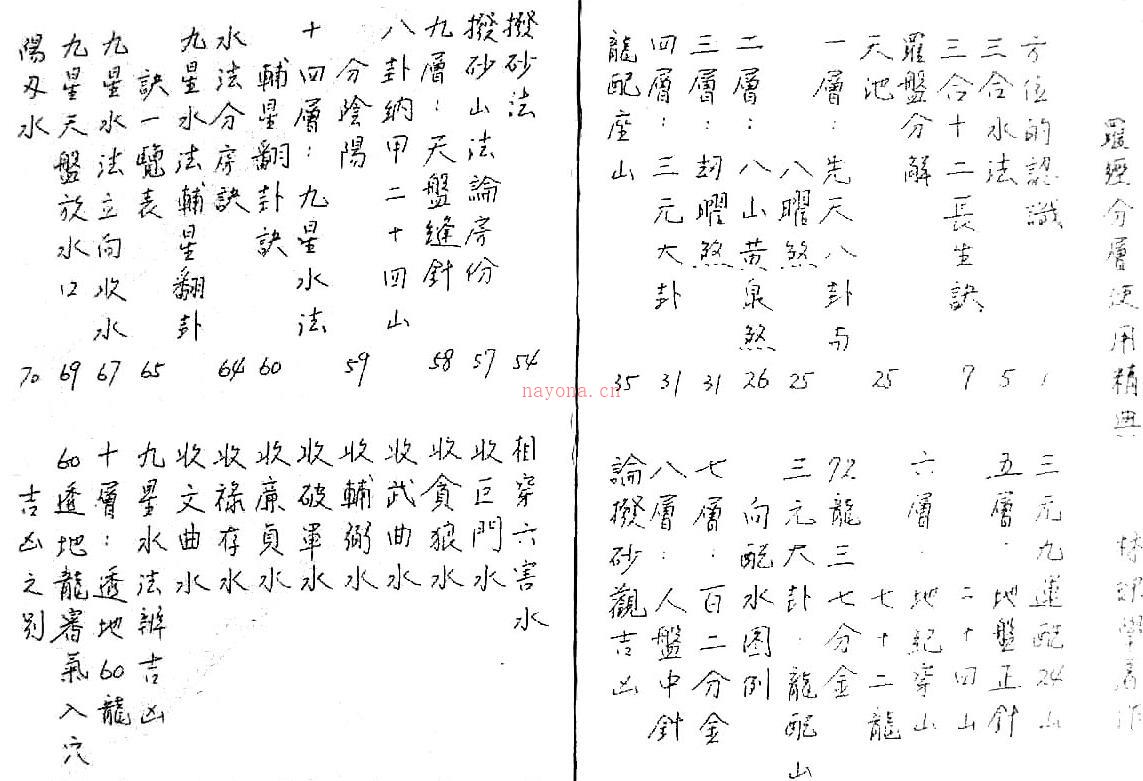 羅經分層使用精典
學著作
方位的認識 1
三合水法 5
三合十二長生訣 7
羅盤分解
天池 25
一層：先天八卦与
八曜煞 25
二層：八山黃泉煞 26
三層：劫曜煞 31
四層：三元大卦 31
龍配座山 35
三元九運配24山
五層．地盤正針
二十四山
六層．地紀穿山
七十二龍
72龍三七分金
三元大卦．龍配山
向配水图例
七層．百二分金
八層：人盤中針
論撥砂觀吉凶
撥砂法 54
撥砂山法論房份 57
九層：天盤縫針 58
八卦納甲二十四山
分陰陽 59
十四層：九星水法
輔星翻卦訣 60
水法分房訣 64
九星水法輔星翻卦
訣一覽表 65
九星水法立向收水 67
九星天盤放水口 69
陽刃水 70
相穿六害水
收巨門水
收貪狼水
收武曲水
收輔弼水
收破軍水
收廉貞水
收祿存水
收文曲水
九星水法辨吉凶
十層：透地60龍
60透地龍審氣入穴
吉凶之别
nayona.cn